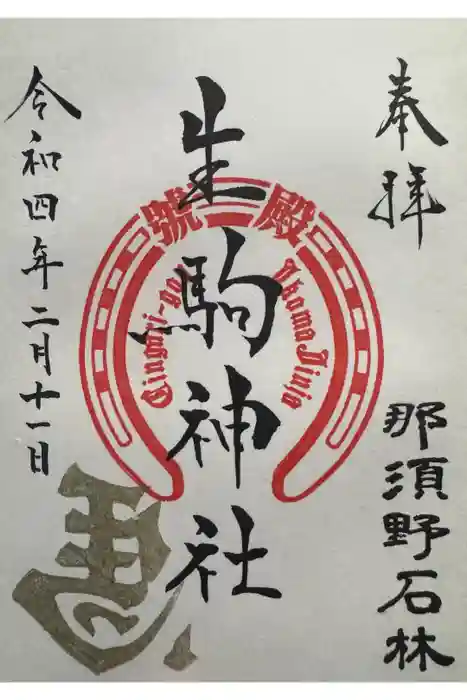 奉拝
那須野石林
生駒神社
殿
號
Ikoma Jinja
令和四年二月十一日
馬